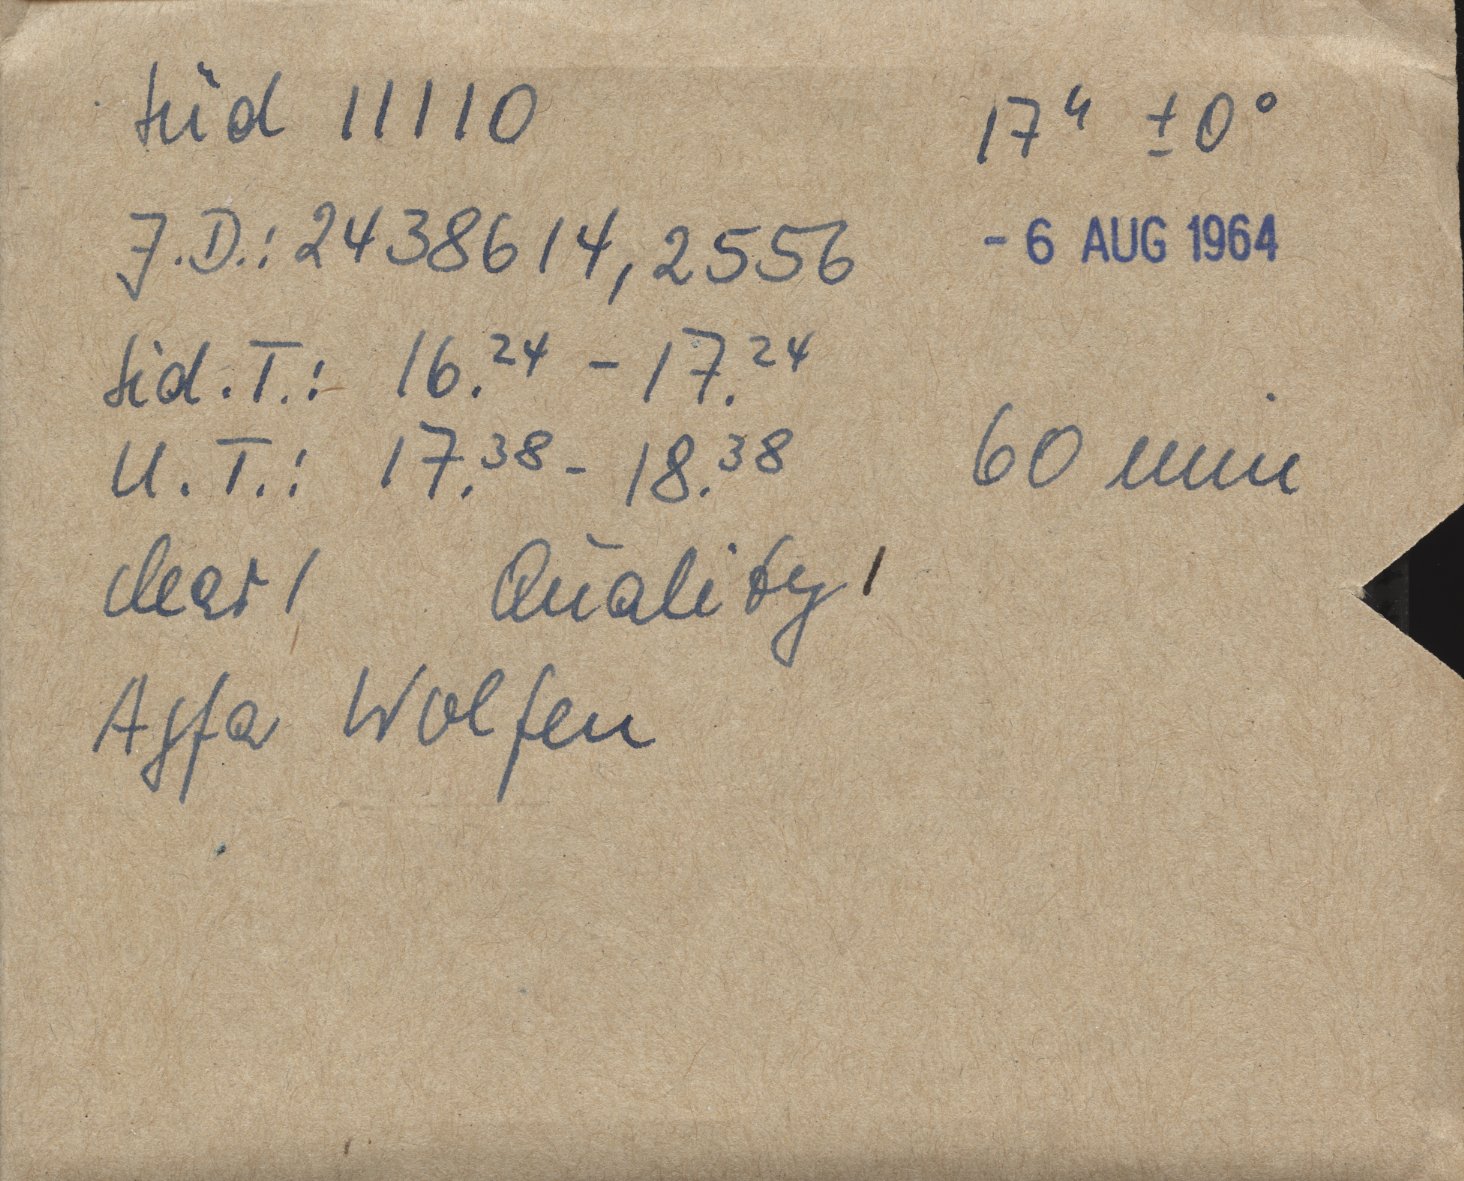 Süd 11110 17ʰ ±0°
J.D.: 2438614,2556 - 6 AUG 1964
Sid.T.: 16.²⁴ – 17.²⁴
U.T.: 17.³⁸ – 18.³⁸ 60 min
clear 1 Quality 1
Agfa Wolfen